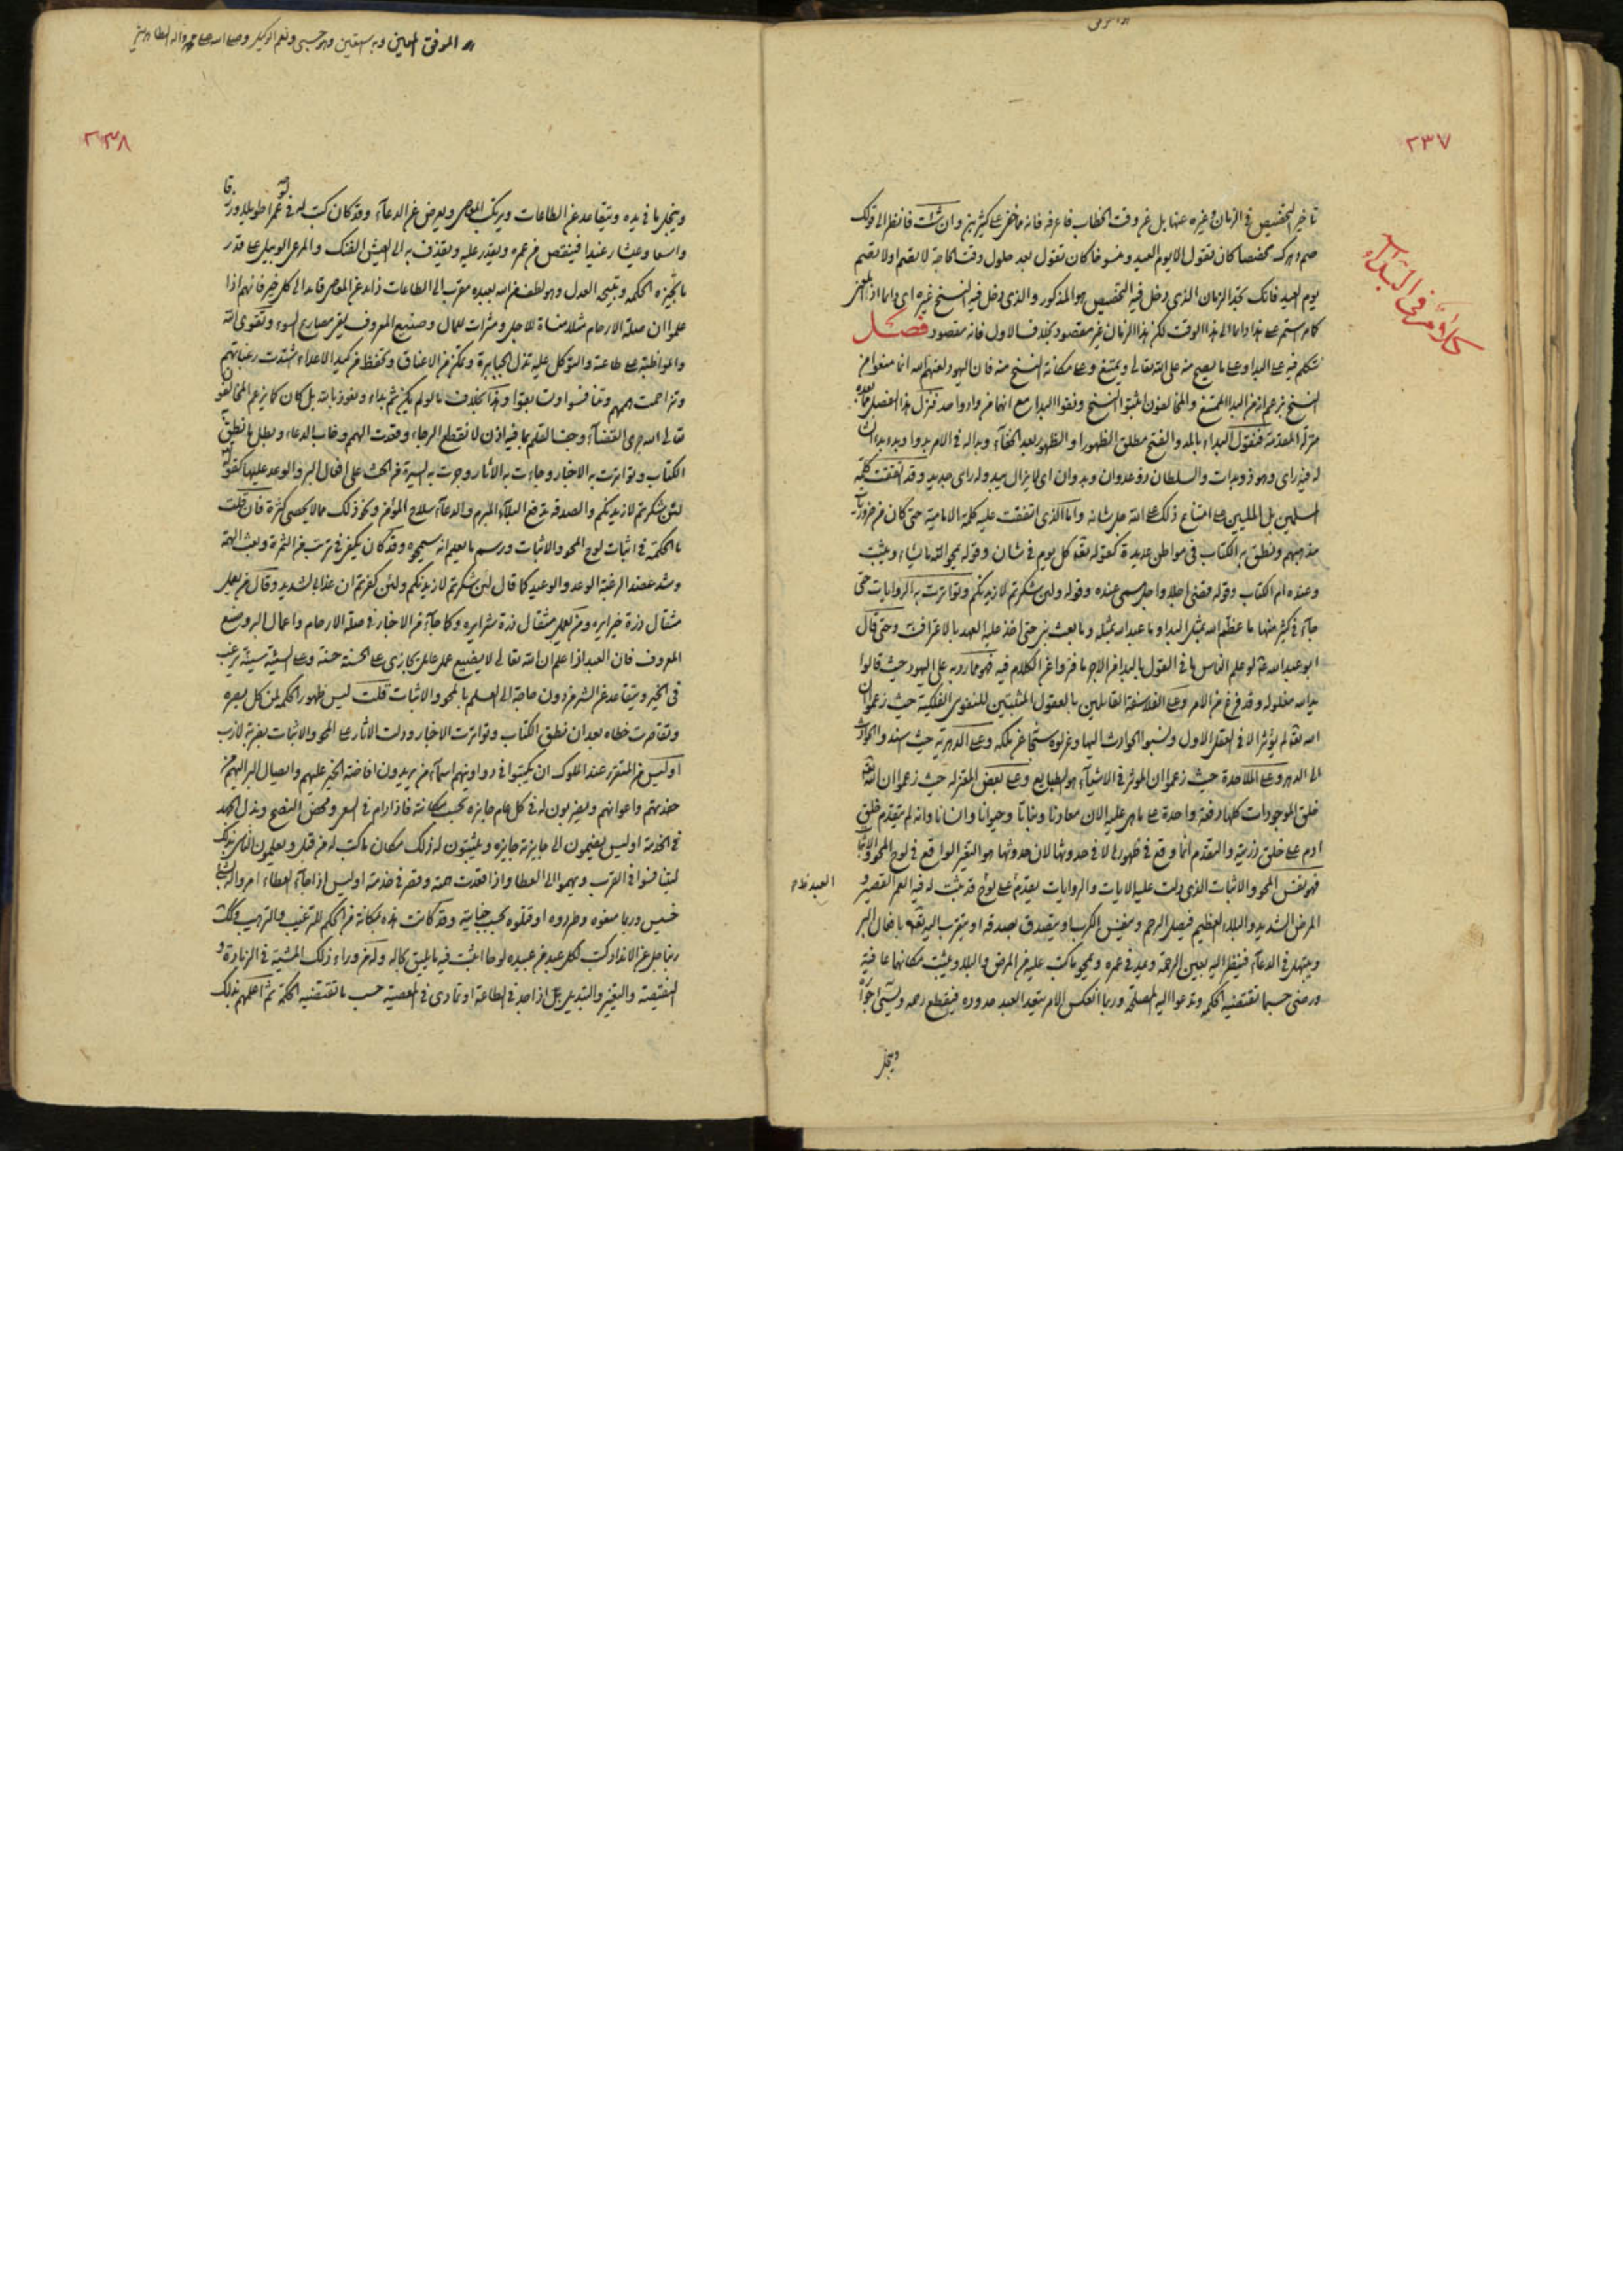 ٢٣٧
كلام في البداء
تاخير التخصيص في الزمان وغيره عنها بل عن وقت الخطاب فاعرفه فانه مما خفى على كثيرين وان شئت فانظر الى قولك
صم دهرك مخصصا كان تقول الا يوم العيد ومنسوخا كان تقول بعد حلول وقت الحاجة لا تصم اولا تصم
يوم العيد فانك تجد الزمان الذي دخل فيه التخصيص هو المذكور والذي دخل فيه النسخ غيره اي دائما
كانه استمر على هذا دائما الى هذا الوقت لكن هذا الزمان غير مقصود بخلاف الاول فانه مقصود فصل
نتكلم فيه على البداء وعلى ما يصح منه على الله تعالى ويمتنع وعلى مكانة النسخ منه فان اليهود لعنهم الله انما منعوا من
النسخ بزعم انه من البدا الممتنع والمخالفون اثبتوا النسخ ونفوا البدا مع انهما من واد واحد فنزل هذا الفصل
منزلة المقدمة فنقول البداء بالمد والفتح مطلق الظهور او الظهور بعد الخفاء وبدا له في الامر بدوا وبداء
له فيه راى وهو ذو بدوات والسلطان ذو عدوان وبدوان اي لا يزال يبدو له راى جديد وقد اتفقت كلمة
المسلمين بل المليين على امتناع ذلك على الله جل شانه واما الذي اتفقت عليه كلمة الامامية حتى كان من ضروريات
مذهبهم ونطق به الكتاب في مواطن عديدة كقوله تعالى كل يوم في شان وقوله يمحو الله ما يشاء ويثبت
وعنده ام الكتاب وقوله قضى اجلا واجل مسمى عنده وقوله ولئن شكرتم لازيدنكم وتواترت به الروايات حتى
جاء في كثير منها ما عظم الله بمثل البدا وما عبد الله بمثله وما بعث نبي حتى اخذ عليه العهد بالاعتراف وحتى قال
ابو عبد الله لو علم الناس ما في القول بالبدا من الاجر ما فتروا عن الكلام فيه فهو مما رد به على اليهود حيث قالوا
يد الله مغلولة وقد فرغ من الامر وعلى الفلاسفة القائلين بالعقول المثبتين للنفوس الفلكية حيث زعموا ان
الله لم يؤثر الا في العقل الاول ونسبوا الحوادث اليها وعزلوه سبحانه عن ملكه وعلى الدهرية حيث اسندوا الحوادث
الى الدهر وعلى الملاحدة حيث زعموا ان المؤثر في الاشياء هو الطبايع وعلى بعض المعتزله حيث زعموا ان الله
خلق الموجودات كلها دفعة واحدة على ما هى عليه الان معادنا ونباتا وحيوانا وانسانا وانه لم يتقدم خلق
ادم على خلق ذريته والتقدم انما وقع في ظهورها لا في حدوثها لان حدوثها هو التغير الواقع في لوح المحو والاثبات
فهو نفس المحو والاثبات الذي دلت عليه الايات والروايات يقدم على لوح قد ثبت له فيه العمر القصير و
المرض الشديد والبلاء العظيم فيصل الرحم وينفس الكرب او يتصدق بصدقه او يتقرب اليه تعالى بافعال البر
ويبتهل في الدعاء فينظر اليه بعين الرحمة ويمد في عمره ويمحو ما كتب عليه من المرض والبلاء ويثبت مكانهما عافية
ورضى حسبما تقتضيه الحكمة وتدعوا اليه المصلحة وربما انعكس الامر يتعدا العبد حدوده فيقطع رحمه
ويبخل
العبد
الموفق المعين وبه نستعين وهو حسبي ونعم الوكيل وصلى الله على محمد واله الطاهرين
٢٣٨
ويبخل بما في يده ويتقاعد عن الطاعات ويرتكب المعاصي ويعرض عن الدعاء وقد كان كتب له في عمرا طويلا ورزقا
واسعا وعيشا رغيدا فينقص من عمره ويقدر عليه ويقذف به الى العيش الضنك والمرعى الوبيل على قدر
ما تجيزه الحكمة ويتيحه العدل وهو لطف من الله بعبده مقرب الى الطاعات زايد عن المعاصي قايد الى كل خير فانهم اذا
علموا ان صلة الارحام مثلا منساة للاجل ومثراة للمال وصنيع المعروف يقي مصارع السوء وتقوى الله
والمواظبة على طاعته والتوكل عليه تذل الجبابرة وتمكن من الاعناق وتحفظ من كيد الاعداء اشتدت رغباتهم
وتزاحمت هممهم وتنافسوا وتسابقوا وهذا بخلاف ما لو لم يكن ثم بداء ونعوذ بالله بل كان كما يزعم المخالفون
تعالى الله جرى القضاء وجف القلم بما فيه اذن لانقطع الرجاء وفقدت الهمم وخاب الدعاء وبطل ما نطق
الكتاب وتواترت به الاخبار وجاءت به الاثار وجرت به السيرة من الحث على افعال البر والوعد عليها كقوله
لئن شكرتم لازيدنكم والصدقة تدفع البلاء المبرم والدعاء سلاح المؤمن ونحو ذلك مما لا يحصى كثرة فان قلت
ما الحكمة في اثبات لوح المحو والاثبات ورسم ما يعلم انه سيمحوه وقد كان يكفي في ترتب الثمرة وبعث الهمة
وشد عضد الرغبة الوعد والوعيد كما قال لئن شكرتم لازيدنكم ولئن كفرتم ان عذابي لشديد وقال من يعمل
مثقال ذرة خيرا يره ومن يعمل مثقال ذرة شرا يره وكما جاء من الاخبار في صلة الارحام واعمال البر وصنع
المعروف فان العبد اذا علم ان الله تعالى لا يضيع عمل عامل يجازى على الحسنة حسنة وعلى السيئة سيئة يرغب
في الخير ويتقاعد عن الشر من دون حاجة الى العلم بالمحو والاثبات قلت ليس ظهور الحكم لمن كمل بصره
وتقاصرت خطاه بعد ان نطق الكتاب وتواترت الاخبار ودلت الاثار على المحو والاثبات بضربة لازب
اوليس من المتقرر عند الملوك ان يكتبوا في دواوينهم اسماء من يريدون افاضة الخير عليهم وايصال البر اليهم من
خدمتهم واعوانهم ويضربون له في كل عام جايزه بحسب مكانته فاذا رام في السعى ومحض النصح وبذل الجهد
في الخدمة اوليس يضيفون الى جايزته جايزه ويثبتون له ذلك مكان ما كتب له من قبل ويعلمون الناس بذلك
ليتنافسوا في القرب ويهموا الى العطا واذا قعدت همته وقصر في خدمته اوليس اذا جاء العطاء امروا له بشئ
خسيس وربما منعوه وطردوه او قتلوه بحسب جنايته وقد كانت هذه بمكانة من الحكم للترغيب والترهيب وكذلك
ربنا جل عن الانداد كتب لكل عبد من عبيده لوحا اثبت فيه ما يليق بحاله وله من وراء ذلك المشية في الزيادة و
النقيصة والتغير والتبديل اذا جد في الطاعة او تمادى في المعصية حسب ما تقتضيه الحكمة ثم اعلمهم بذلك